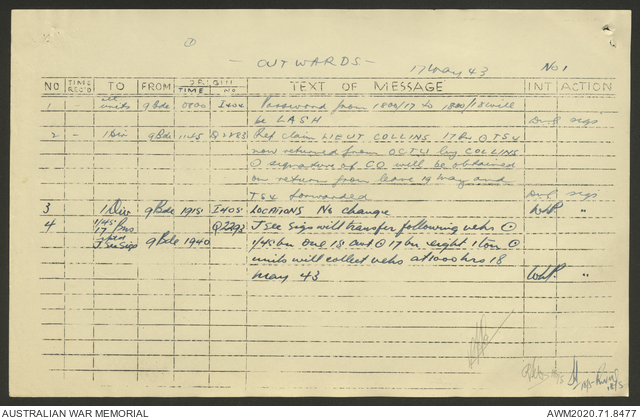 ①
- OUTWARDS -
17 May 43 No 1
NO TIME REC'D TO FROM ORIGIN TIME NO. TEXT OF MESSAGE INT ACTION
1 - all units 9 Bde 0800 I404 Password from 1800/17 to 1800/18 will
be LASH sigs
2 - 1 Div 9 Bde 1145 Ref claim LIEUT COLLINS 17 Bn
now returned from OCTU by COLLINS
signature of CO will be obtained
on return from leave 19 May and
forwarded sigs
3 1 Div 9 Bde 1915 I405 LOCATIONS No change "
4 1/45 17 Bns J Sec Sigs 9 Bde 1940 J Sec Sigs will transfer following vehs
1/45 Bn one 15 cwt 17 Bn eight 1 ton
units will collect vehs at 1000 hrs 18
May 43 "
AUSTRALIAN WAR MEMORIAL AWM2020.71.8477